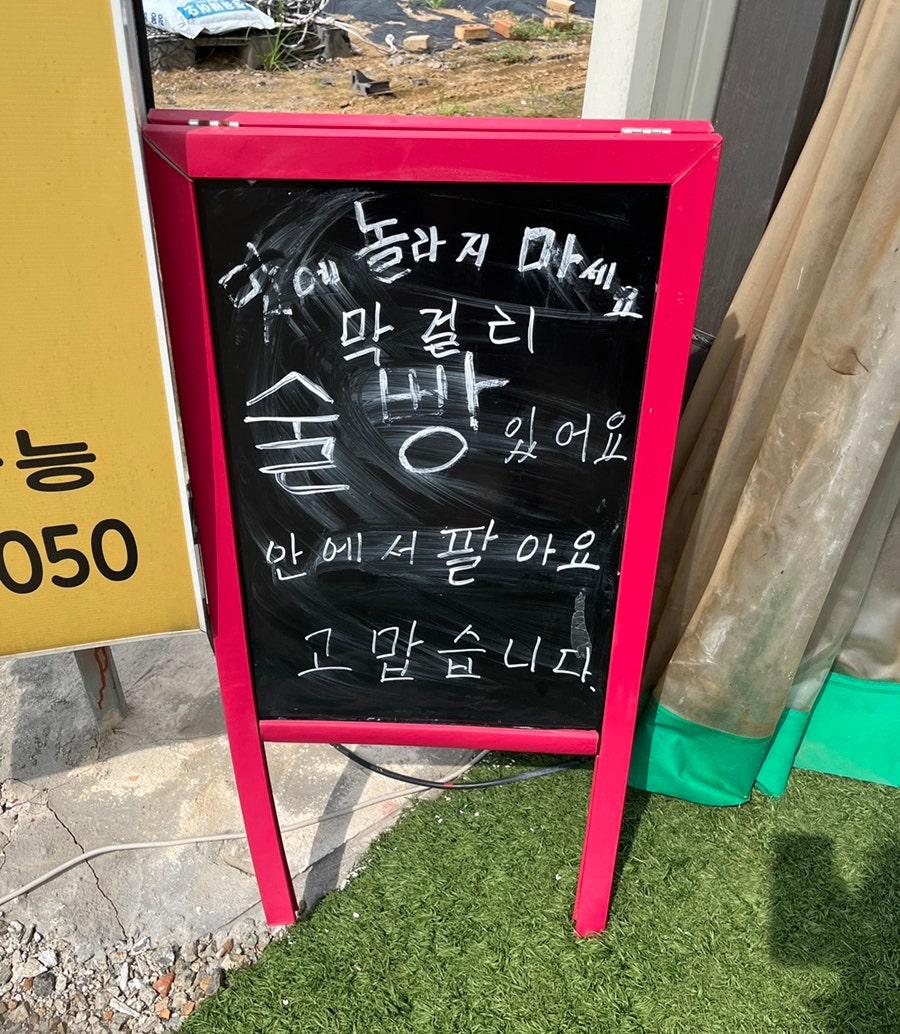 놀라지 마세요
막걸리
술빵 있어요
안에서 팔아요
고맙습니다.
능
050